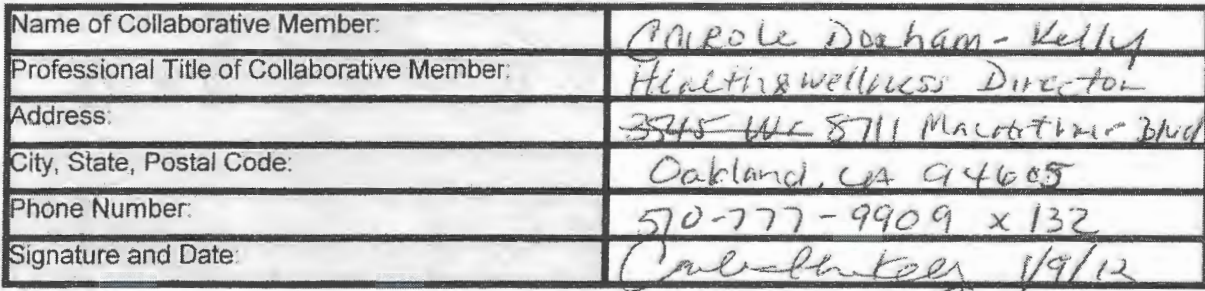 Name of Collaborative Member: Dorham-Kelly
Professional Title of Collaborative Member: Health & wellness Director
Address: 8711 MacArthur Blvd
City, State, Postal Code: Oakland, CA 94605
Phone Number: 510-777-9909 x 132
Signature and Date: 1/9/12